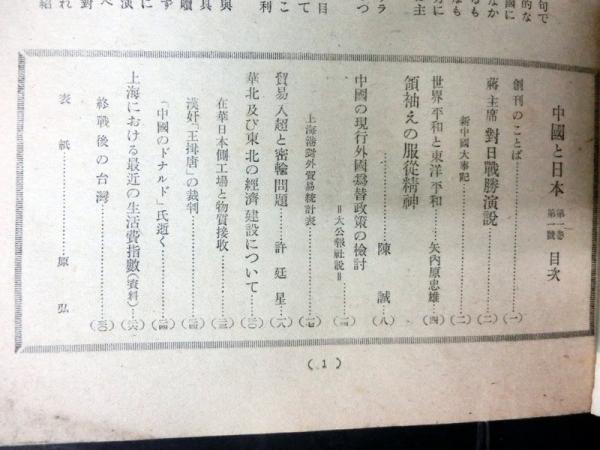 中國と日本 第一卷 第一號 目次
創刊のことば……(一)
蔣主席 對日戰勝演説……(二)
新中國大事記……(二)
世界平和と東洋平和……矢内原忠雄…(四)
領袖えの服從精神……陳誠…(八)
中國の現行外國爲替政策の檢討
=大公報社説=……
上海港對外貿易統計表……
貿易入超と密輸問題……許廷星…(一六)
華北及び東北の經濟建設について……(二〇)
在華日本側工場と物質接收……
漢奸「王揖唐」の裁判……
「中國のドナルド」氏逝く……
上海における最近の生活費指數(資料)…
終戰後の台灣……
表紙……原弘
(1)